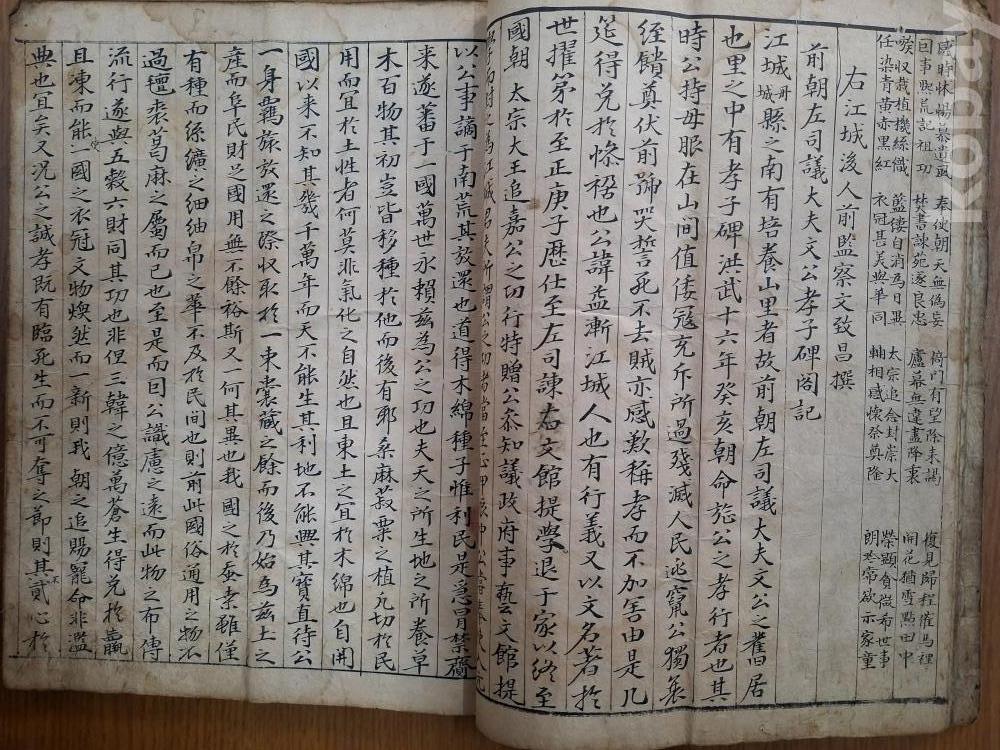 奉使朝天無偽妄 倚門有望除未謁 復見歸程催馬裡
回事興荒記祖功 焚書諫苑逐良忠 廬幕無違盡降衷 開花猶雪點田中
收栽植機絲織 藍縷自消為日異 太宗追念封崇大 榮顯貧微布世事
任染青黄赤黑紅 衣冠甚美與華同 軸相感懷祭奠隆 朗 常欲示家童
右江城後人前監察文致昌撰
前朝左司議大夫文公孝子碑閣記
江城縣之南有培養山里者故前朝左司議大夫文公之舊居
也里之中有孝子碑洪武十六年癸亥朝命旌公之孝行者也其
時公持母服在山間值倭寇充斥所過殘滅人民逃竄公獨衰
絰饋奠伏前號哭誓死不去賊亦感歎稱孝而不加害由是几
筵得免於慘禍也公諱益漸江城人也有行義又以文名著於
世擢第於至正庚子歷仕至左司諫右文館提學退于家以終至
國朝 太宗大王追嘉公之功行特贈公叅知議政府事藝文館提
以公事謫于南荒其放還也道得木綿種子惟利民是爲冒禁齎
来遂蕃于一國萬世永賴兹為公之功也夫天之所生地之所養草
木百物其初豈皆移種於他而後有耶桑麻菽粟之植凡切於民
用而宜於土性者何莫非氣化之自然也且東土之宜於木綿也自開
國以来不知其幾千萬年而天不能生其利地不能興其寶直待公
一身羈旅放還之際收取於一束裳藏之餘而後乃始為兹土之
產而阜民財足國用無不餘裕斯又一何其異也我 國之於蚕素雖僅
有種而絲纊之細紬帛之華不及於民間也則前此國俗通用之物不
過氊裘葛麻之屬而已也至是而因公識慮之遠而此物之布傳
流行遂與五穀六財同其功也非但三韓之億萬蒼生得免於羸
且凍而能使一國之衣冠文物煥然而一新則我 朝之追賜寵命非濫
典也宜矣又况公之誠孝既有臨死生而不可奪之節則其不貳心於